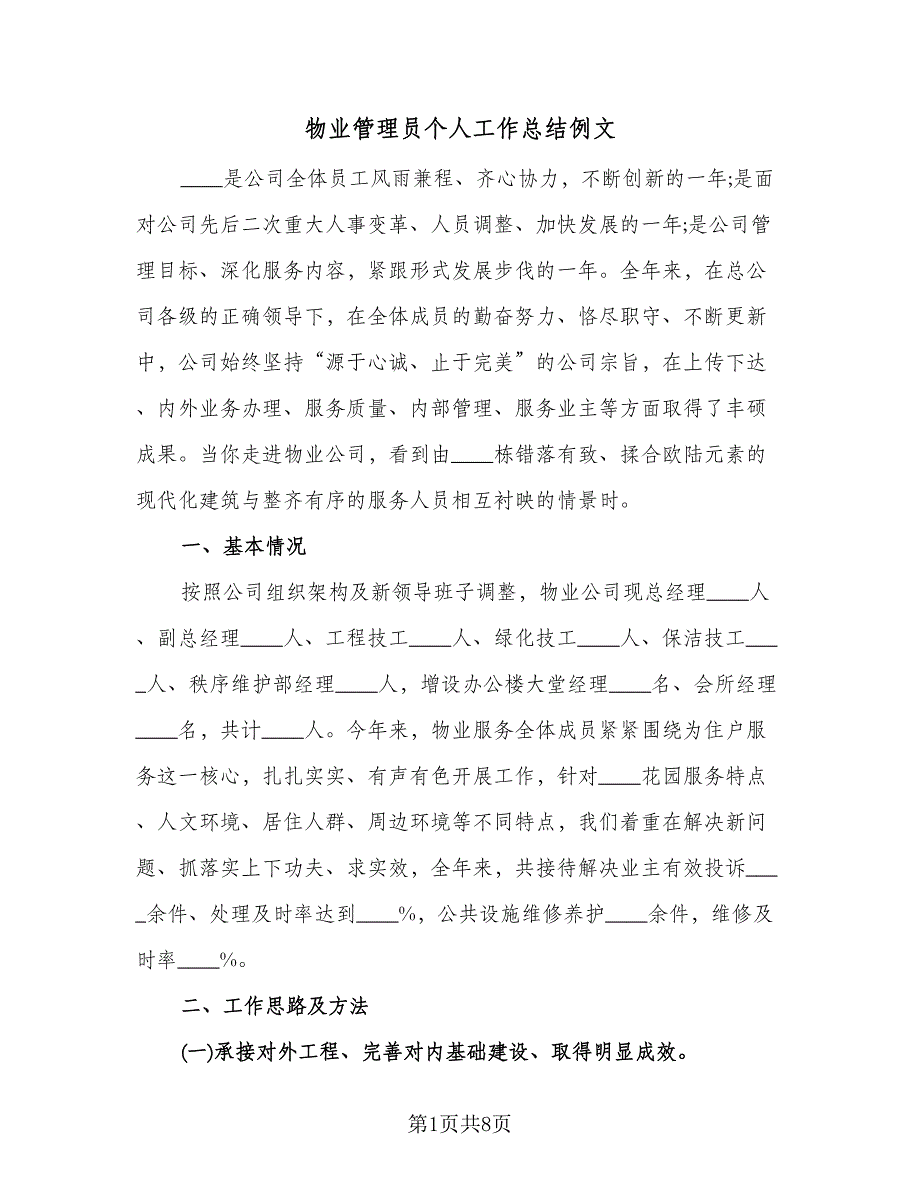 物业管理员个人工作总结例文
____是公司全体员工风雨兼程、齐心协力，不断创新的一年;是面
对公司先后二次重大人事变革、人员调整、加快发展的一年;是公司管
理目标、深化服务内容，紧跟形式发展步伐的一年。全年来，在总公
司各级的正确领导下，在全体成员的勤奋努力、恪尽职守、不断更新
中，公司始终坚持“源于心诚、止于完美”的公司宗旨，在上传下达
、内外业务办理、服务质量、内部管理、服务业主等方面取得了丰硕
成果。当你走进物业公司，看到由____栋错落有致、揉合欧陆元素的
现代化建筑与整齐有序的服务人员相互衬映的情景时。
一、基本情况
按照公司组织架构及新领导班子调整，物业公司现总经理____人
、副总经理____人、工程技工____人、绿化技工____人、保洁技工___
_人、秩序维护部经理____人，增设办公楼大堂经理____名、会所经理
____名，共计____人。今年来，物业服务全体成员紧紧围绕为住户服
务这一核心，扎扎实实、有声有色开展工作，针对____花园服务特点
、人文环境、居住人群、周边环境等不同特点，我们着重在解决新问
题、抓落实上下功夫、求实效，全年来，共接待解决业主有效投诉___
_余件、处理及时率达到____%，公共设施维修养护____余件，维修及
时率____%。
二、工作思路及方法
(一)承接对外工程、完善对内基础建设、取得明显成效。
第1页共8页